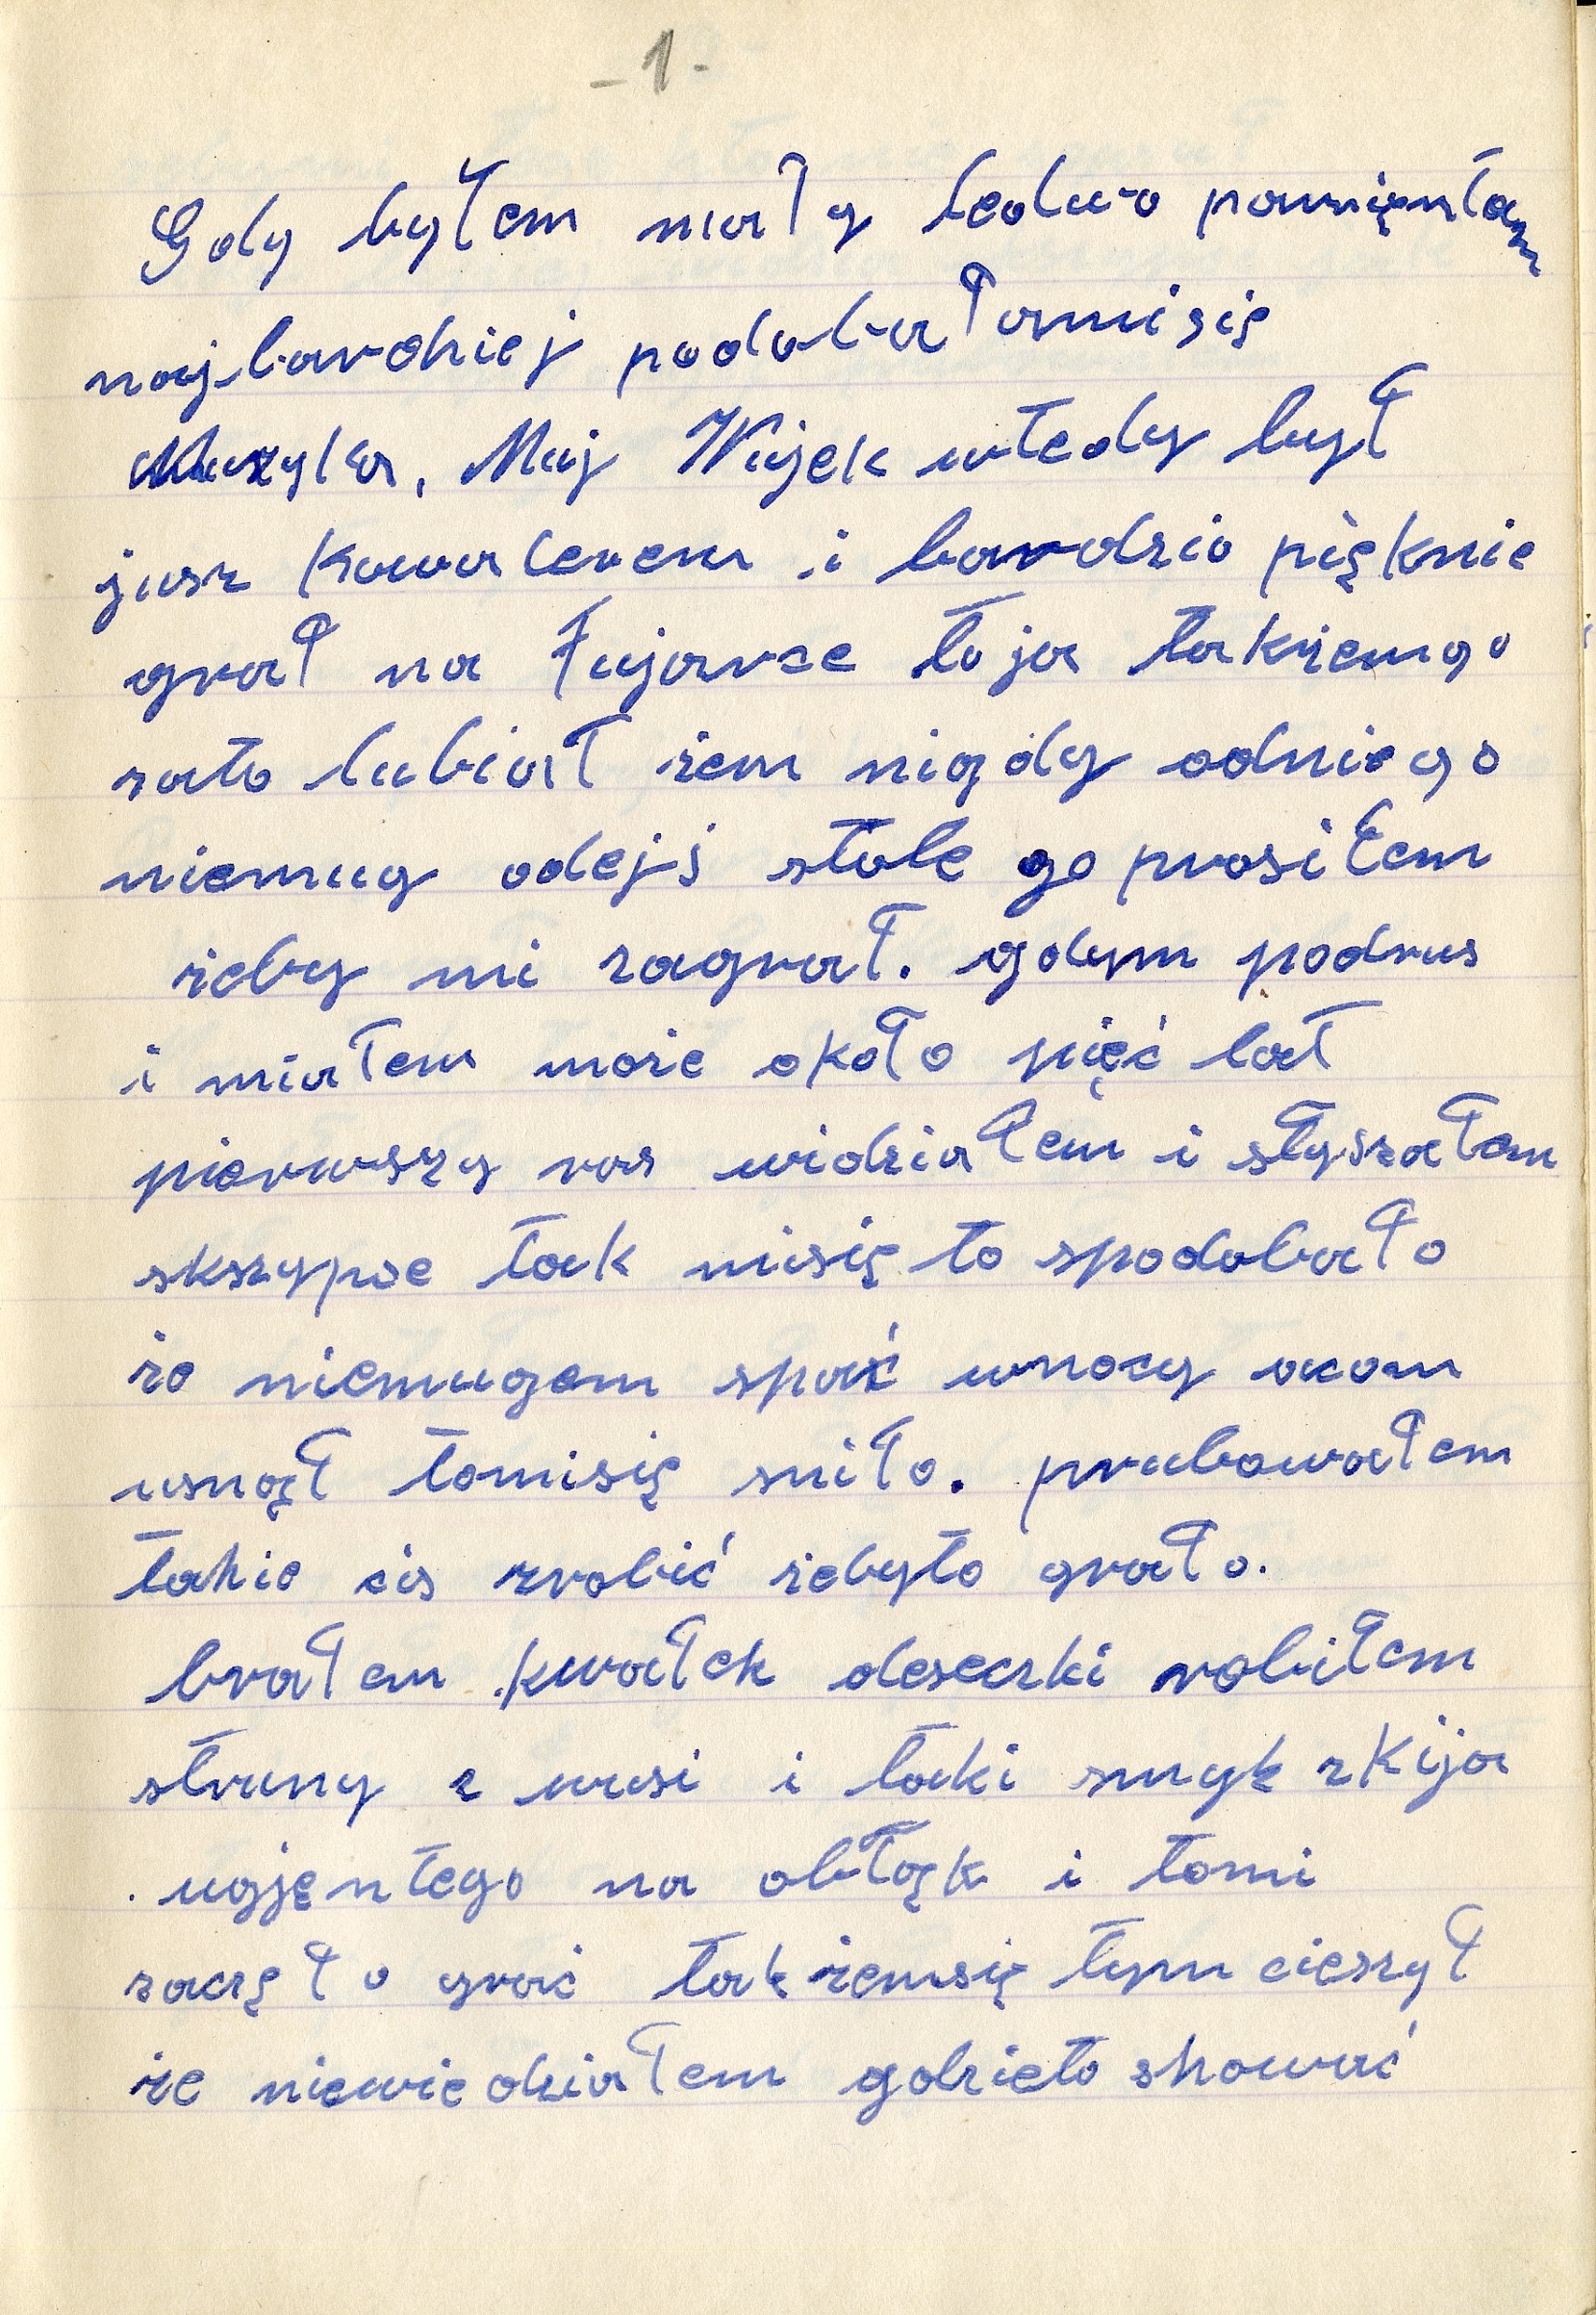 - 1 -
Gdy byłem mały ledwo pamięntam
najbardziej podobałamisię
Muzyka, Muj Wujek wtedy był
jusz kawalerem i bardzio pięknie
grał na fujarce to ja takiemgo
zato lubiał żem nigdy odniego
niemug odejś stale go prosiłem
żeby mi zagrał. gdym podrus
i miałem może około pięć lat
pierwszy raz widziałem i słyszałem
skszypce tak misię to spodobało
że niemugem spać wnocy acom
usnął tomisię sniło. prubowałem
takie cis zrobić żebyto grało.
brałem kwałek deseczki robiłem
struny z wusi i taki smyk zkija
ugjęntego na obłąk i tomi
zaczęło grać tak żemsię tym cieszył
że niewiedziałem gdzieto shować